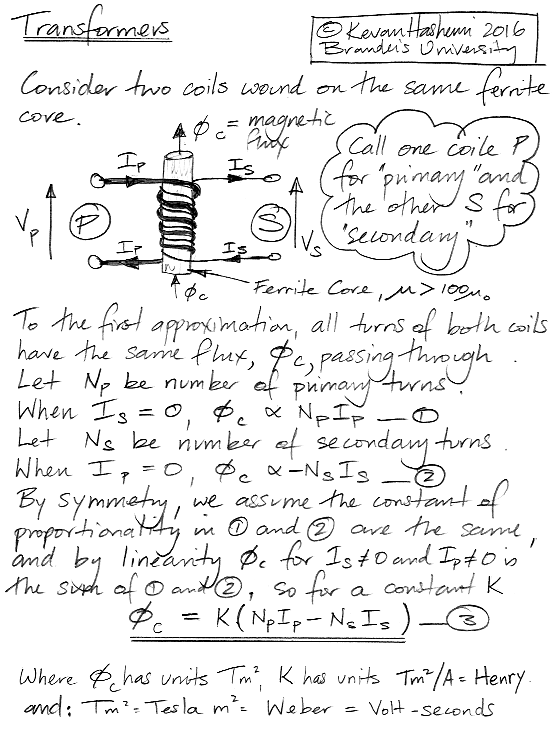 Transformers
© Kevan Hashemi 2016
Brandeis University
Consider two coils wound on the same ferrite
core.
ϕc = magnetic
flux
Ip
Is
Call one coile P
for "primary" and
the other S for
"secondary"
Vp
P
S
Vs
Ip
Is
ϕc
Ferrite Core, μ > 100μ₀
To the first approximation, all turns of both coils
have the same flux, ϕc, passing through.
Let Np be number of primary turns.
When Is = 0, ϕc ∝ NpIp — ①
Let Ns be number of secondary turns.
When Ip = 0, ϕc ∝ -NsIs — ②
By symmetry, we assume the constant of
proportionality in ① and ② are the same,
and by linearity ϕc for Is ≠ 0 and Ip ≠ 0 is
the sum of ① and ②, so for a constant K
ϕc = K(NpIp - NsIs) — ③
Where ϕc has units Tm², K has units Tm²/A = Henry.
and: Tm² = Tesla m² = Weber = Volt-seconds